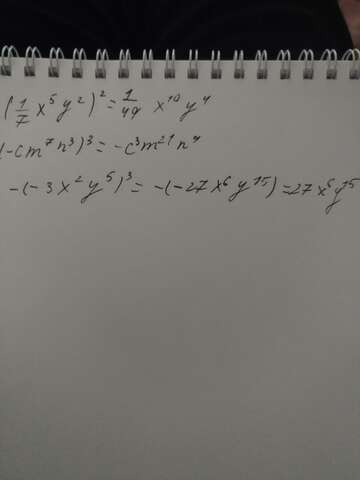 (1/7 x⁵y²)² = 1/49 x¹⁰y⁴
(-cm⁷n³)³ = -c³m²¹n⁹
-(-3x²y⁵)³ = -(-27x⁶y¹⁵) = 27x⁶y¹⁵